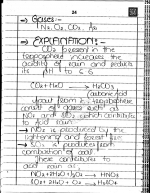 24
→ Gases:-
N₂, O₂, CO₂, Ar
→ EXPLAINATION:-
CO₂ present in the
troposphere increases the
acidity of rain and reduces
its pH to 5.6
CO₂ + H₂O → H₂CO₃
Carbonic Acid
Apart from it, troposphere
consist of gases such as
NO₂ and SO₂ which contributes
to acid rain
→ NO₂ is produced by the
lightening and forest fire
→ SO₂ is produced from
combustion of coal
These contributes to
acid rain
NO₂ + 2H₂O + ½O₂ → HNO₃
SO₂ + 2H₂O + O₂ → H₂SO₄